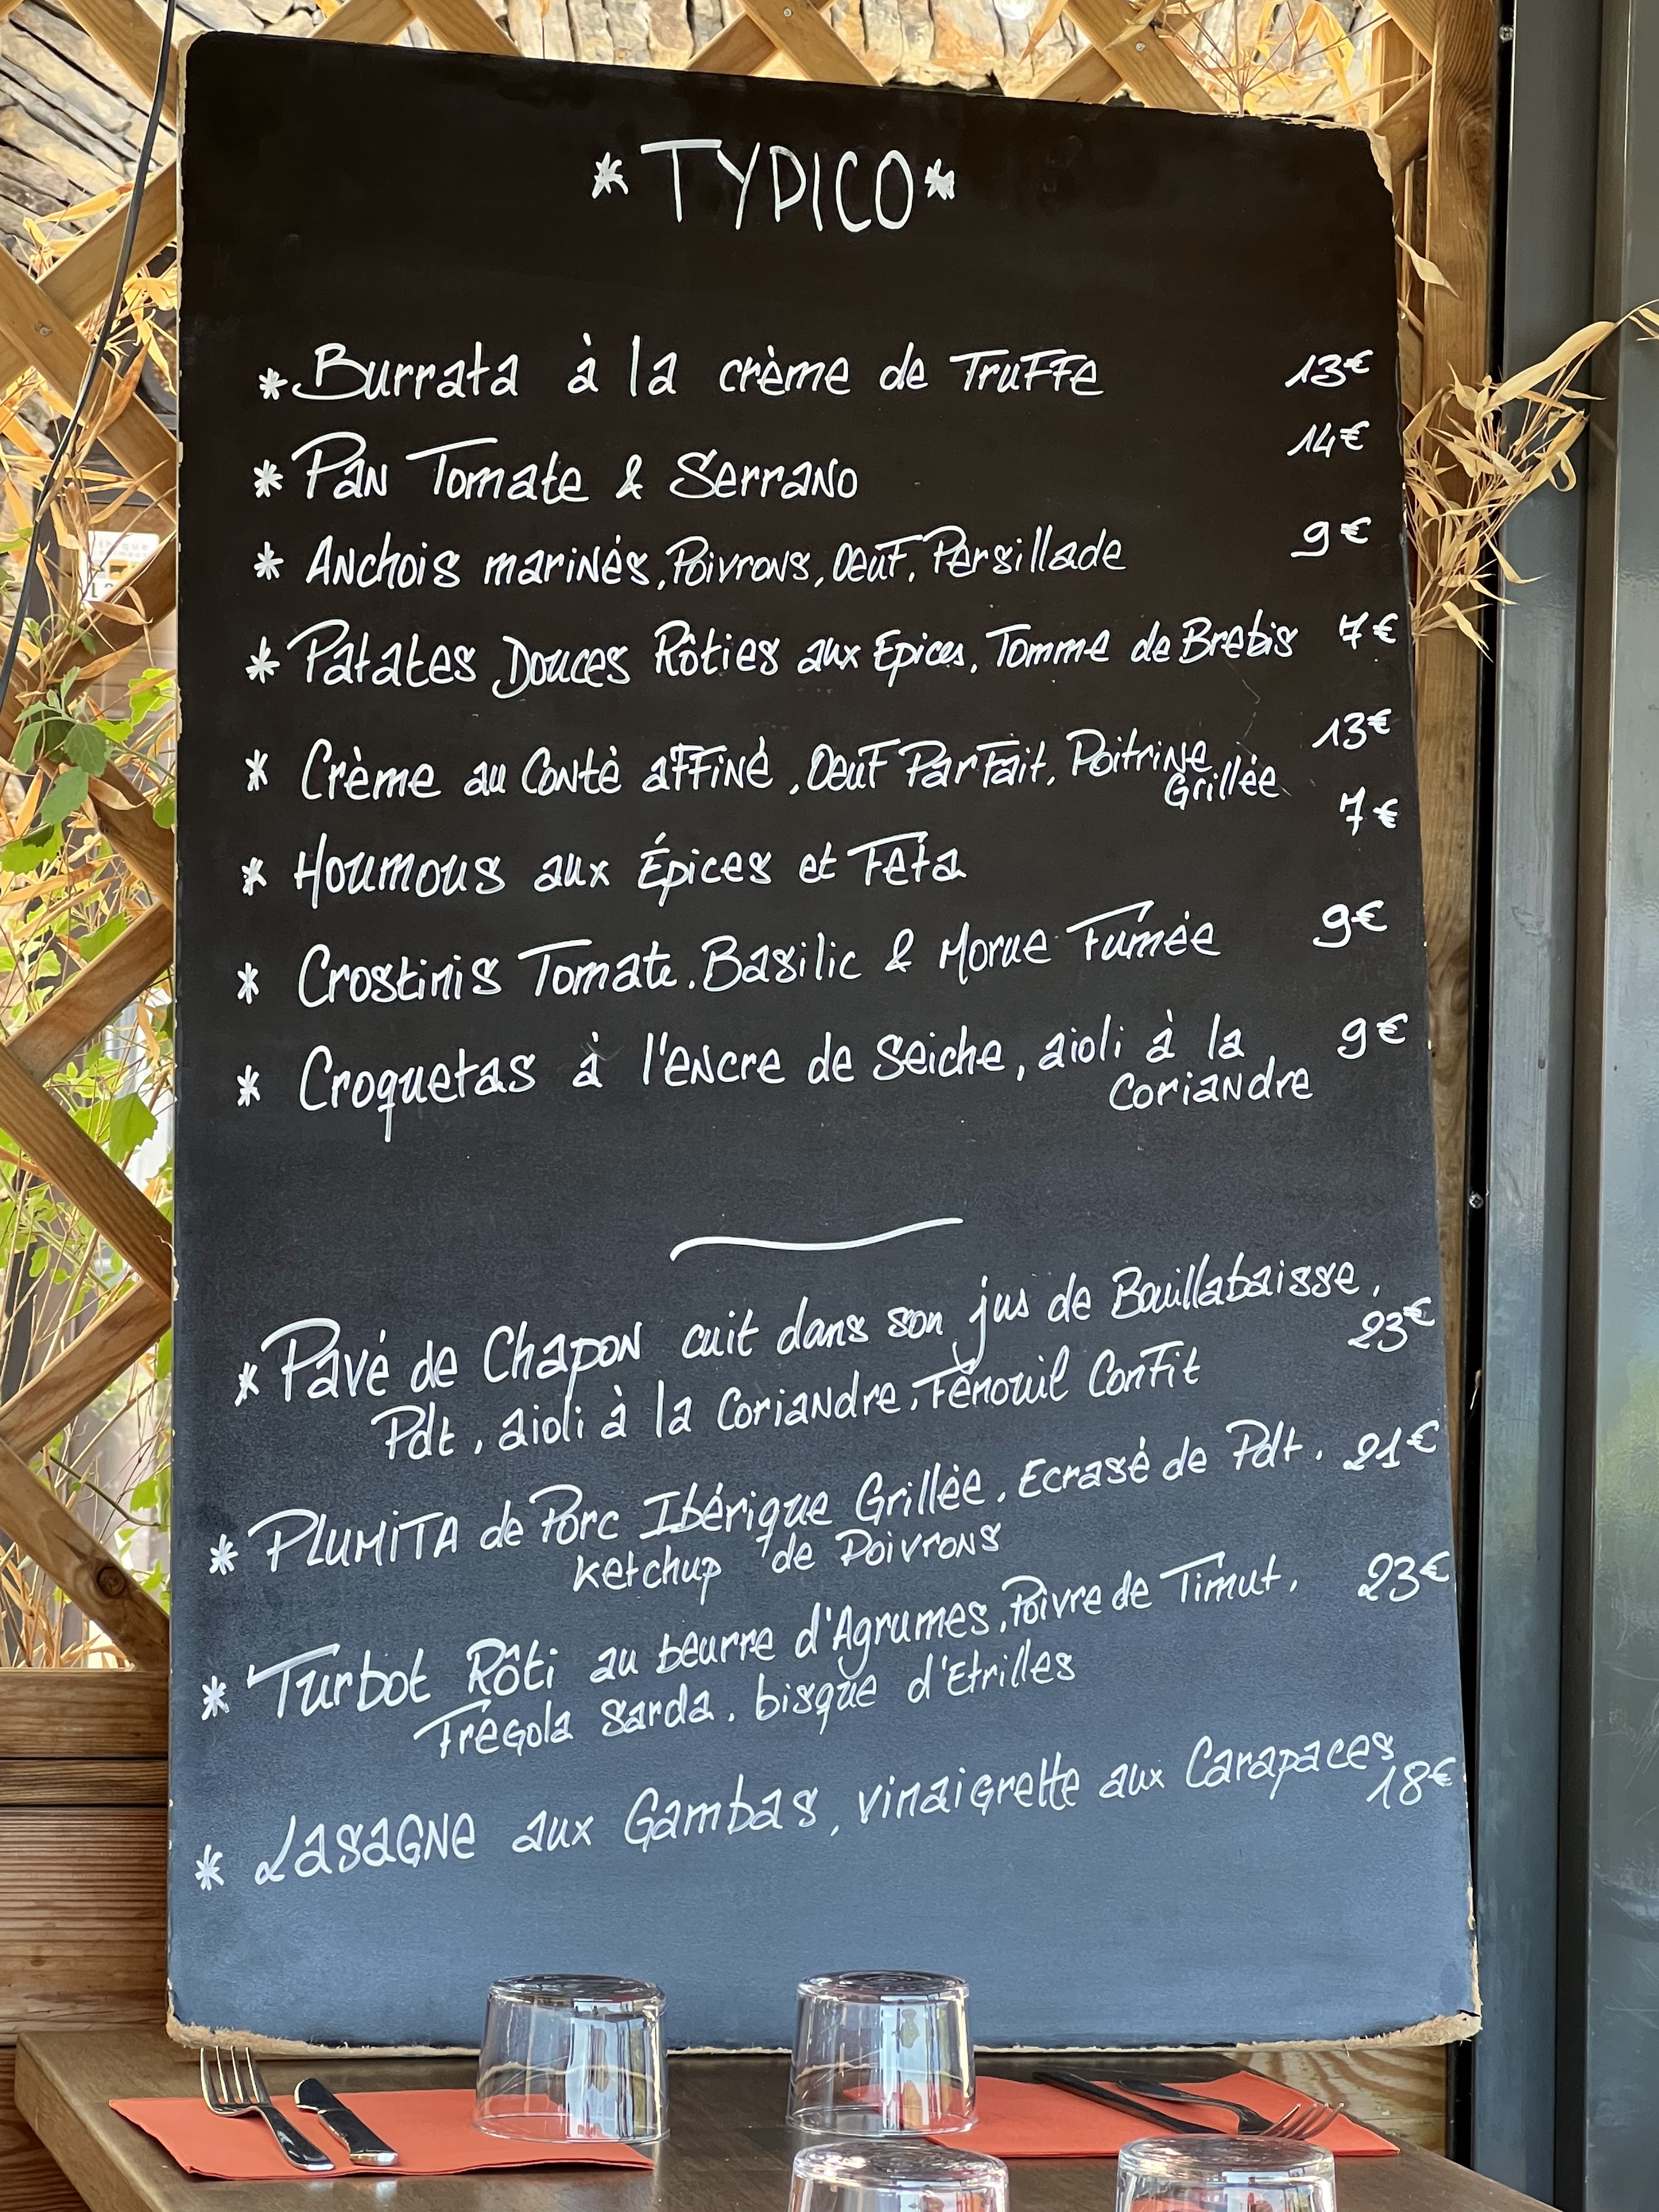 *TYPICO*
*Burrata à la crème de Truffe 13€
* Pan Tomate & Serrano 14€
* Anchois marinés, Poivrons, Oeuf, Persillade 9€
* Patates Douces Rôties aux Epices, Tomme de Brebis 7€
* Crème au Comté affiné, Oeuf Parfait, Poitrine 13€
Grillée
* Houmous aux Épices et Feta 7€
* Crostinis Tomate, Basilic & Morue Fumée 9€
* Croquetas à l'encre de Seiche, aioli à la 9€
Coriandre
* Pavé de Chapon cuit dans son jus de Bouillabaisse, 23€
Pdt, aioli à la Coriandre, Fenouil Confit
* PLUMITA de Porc Ibérique Grillée, Ecrasé de Pdt, 21€
Ketchup de Poivrons
* Turbot Rôti au beurre d'Agrumes, Poivre de Timut, 23€
Fregola Sarda, bisque d'Etrilles
* Lasagne aux Gambas, vinaigrette aux Carapaces 18€